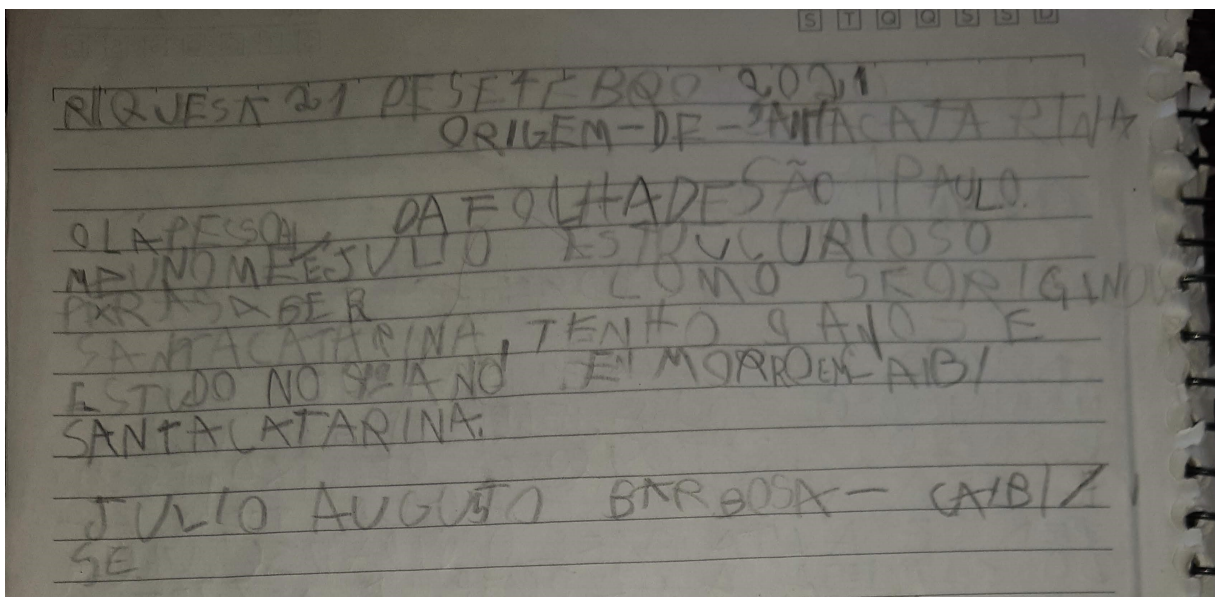 S T Q Q S S D
RIQUESA 21 DE SETEBRO 2021
ORIGEM-DE-SANTACATARINA
OLÁ PESSOAL DA FOLHA DE SÃO PAULO.
MEU NOME É JULIO ESTOU CURIOSO
PARA SABER COMO SE ORIGINOU
SANTACATARINA, TENHO 9 ANOS E
ESTUDO NO ANO E MORRO EM CAIBI
SANTACATARINA.
JULIO AUGUSTO BARBOSA - CAIBI/